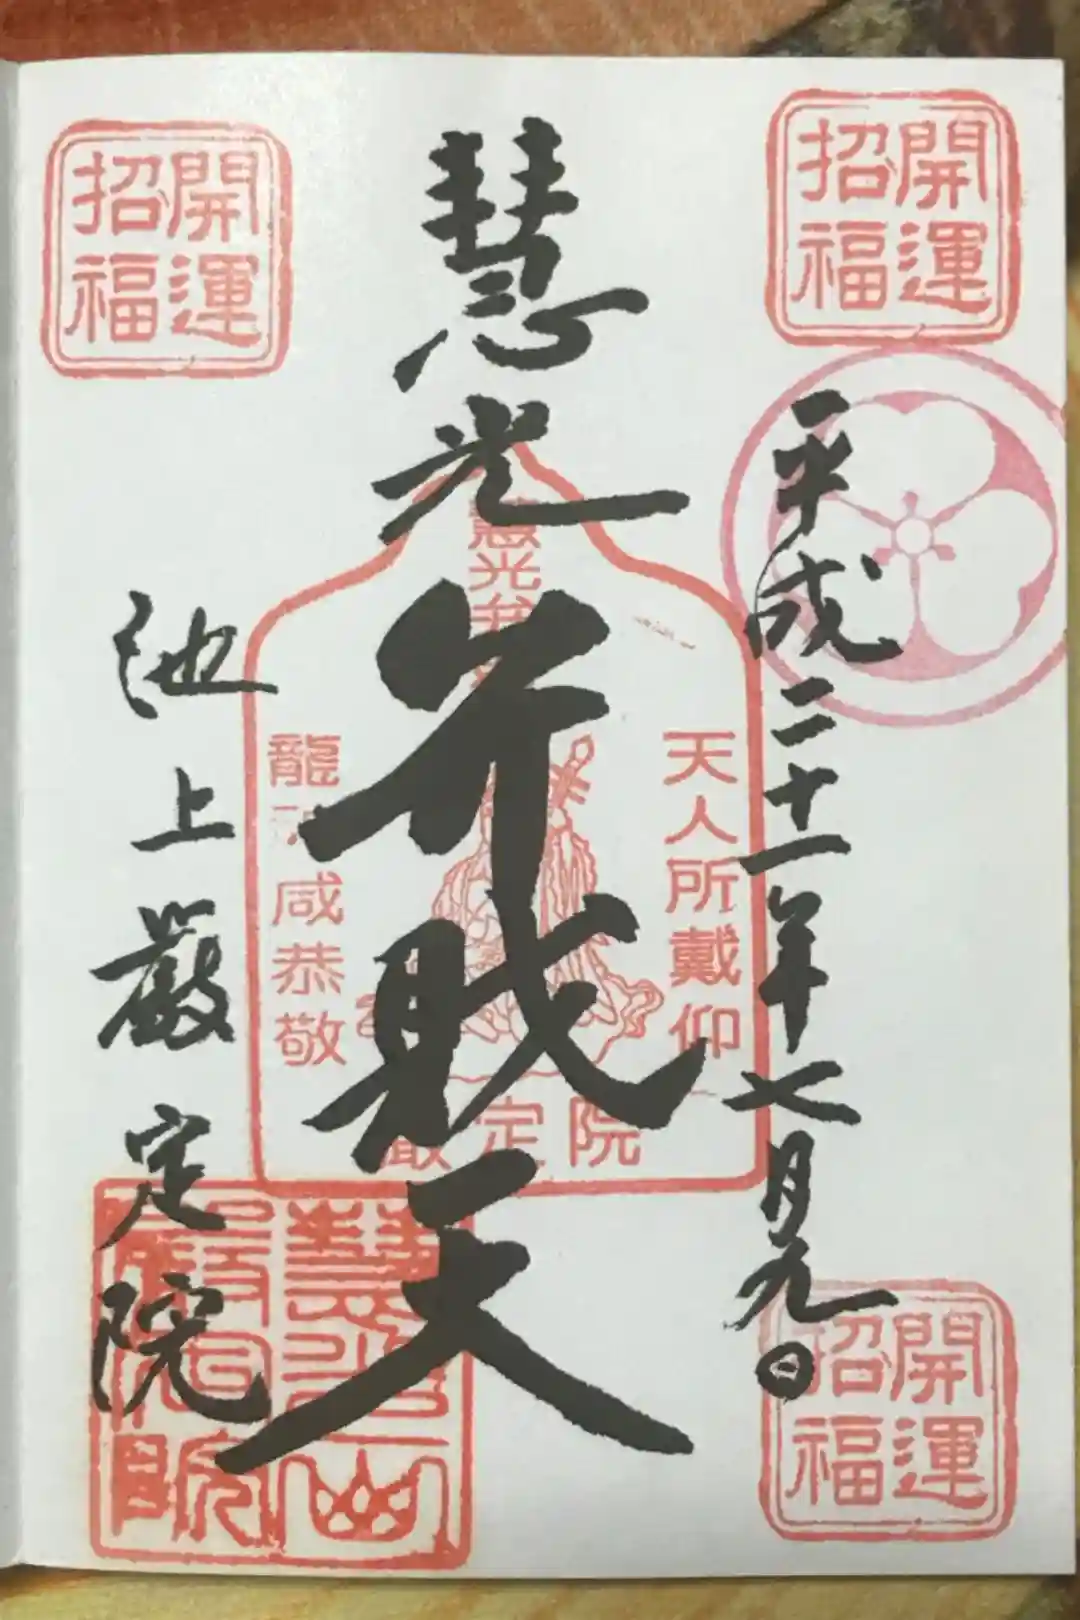 開運
招福
開運
招福
平成二十一年七月九日
慧光弁財天
池上厳定院
慧光弁
天人所戴仰
龍咸恭敬
定院
慧光山
開運
招福